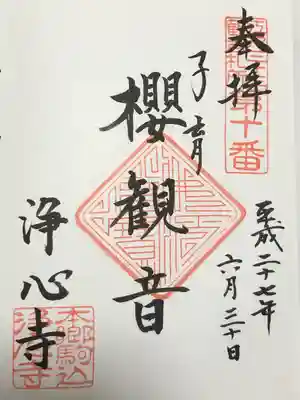 奉拝
十番
平成二十七年
六月三十日
子育
櫻観音
浄心寺
本郷駒込
浄心寺